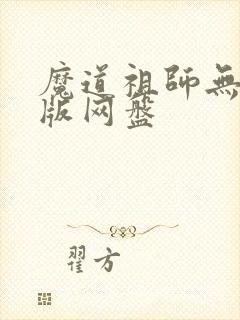 魔道祖師無
版网盤
翟方